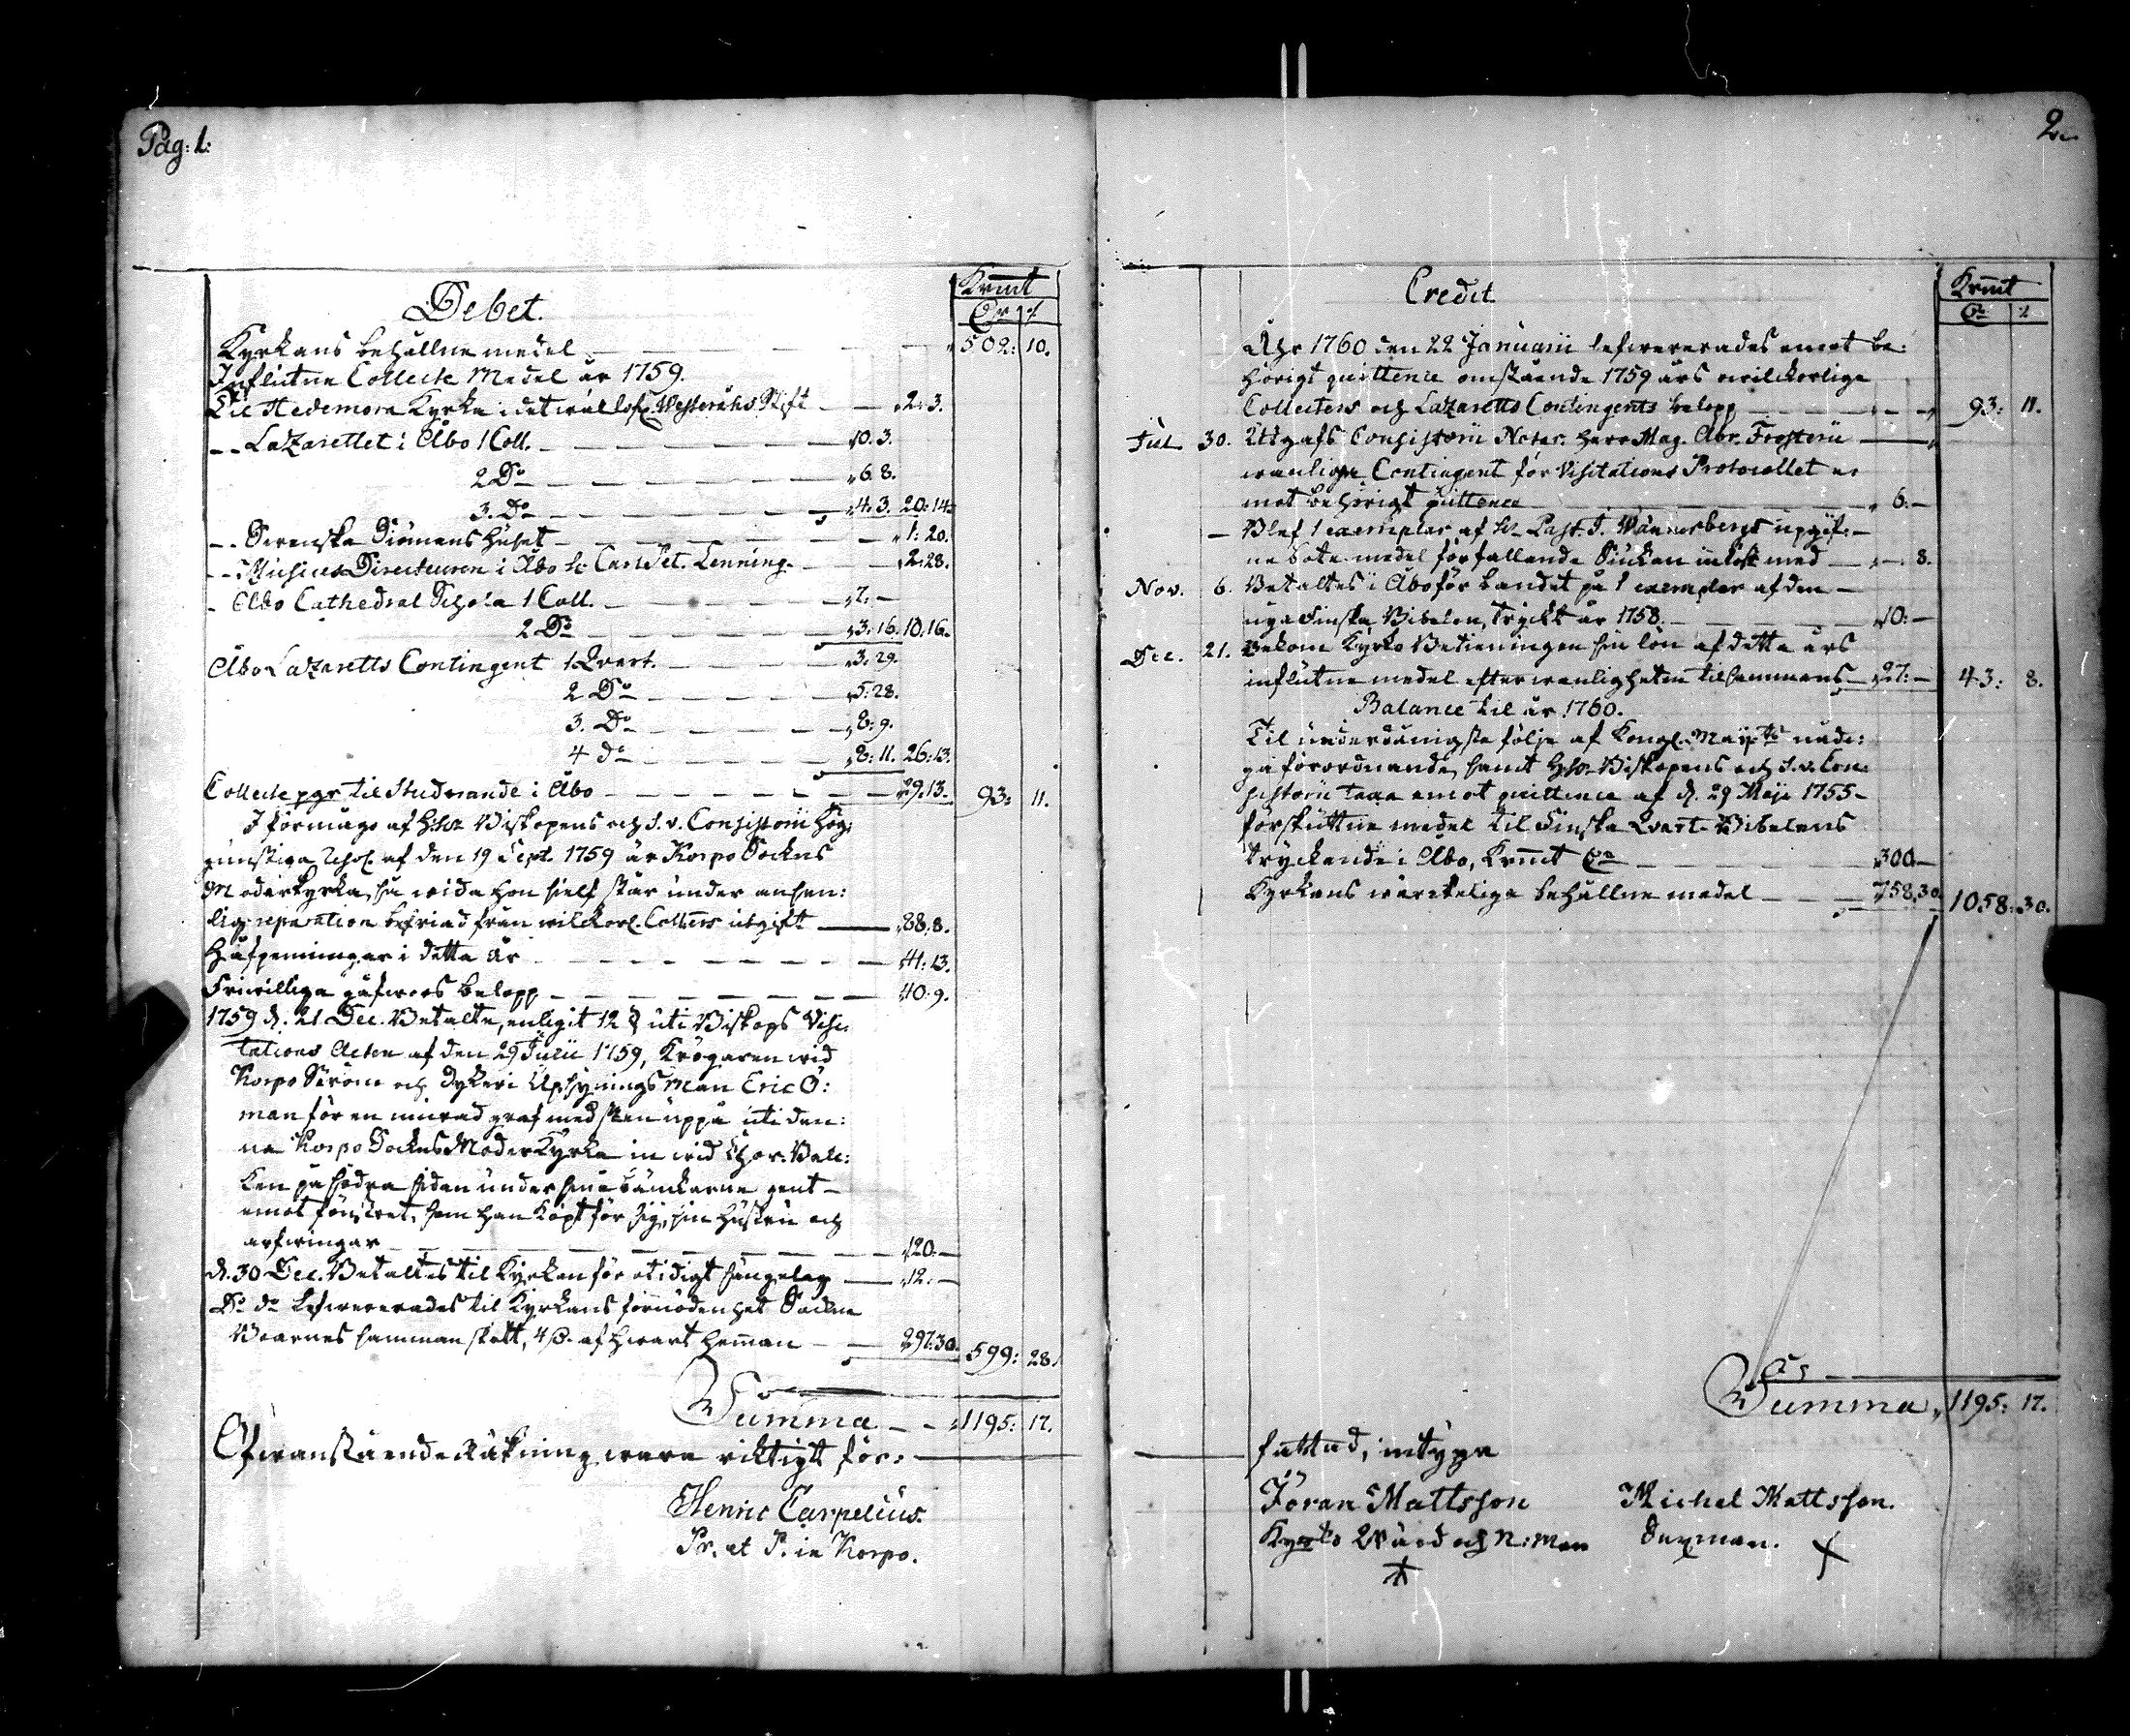 Pag: 1:
Debet.
Krmt
Cr
Kyrkans behållne medel — 502: 10.
Influtne Collecte Medel år 1759.
Til Hedemora Kyrka i det Westeråhs Stift — 2: 3.
-- Lazarettet i Åbo 1 Coll. — 10. 3.
2 Do — 6. 8.
3. Do — 4. 3. 20: 14.
-- Swenska Siömans Huset — 1: 20.
-- Musices Directeuren i Åbo hr Carl Pet. Lenning. — 2: 28.
- Åbo Cathedral Schola 1 Coll. — 7: —
2 Do — 3: 16. 10: 16.
Åbo Lazaretts Contingent 1 Qvart. — 3: 29.
2 Do — 5: 28.
3. Do — 8: 9.
4 do — 8: 11. 26: 13.
Collecte pgr til Studerande i Åbo — 29: 13. 93: 11.
I förmågo af H:hr Biskopens och S. v. Consistorii Hög:
gunstiga af den 19 Sept. 1759 är Korpo Sockns
Moderkyrka, så wida hon sielf står under ansen:
lig reparation befriad från wilckorl. Collecters utgift — 88: 8.
Håfpenningar i detta år — 41: 13.
Friwilliga gåfwors belopp — 40: 9.
1759 d. 21 Dec. Betalte, enligit 12 § uti Biskops Visi:
tations Acten af den 29 Julii 1759, Krögaren wid
Korpo Ström och Dykeri Upsynings Man Eric Ö:
man för en murad graf med sten uppå uti den:
na Korpo Sockns Moder Kyrka in wid Chor-
ken på södra sidan under sine bänckarne gent-
emot fönstret, som han köpt för sig, sin Hustru och
arfwingar — 120: —
d. 30 Dec. Betaltes til Kyrkan för otidigt sängelag — 12: —
Do do lefwererades til Kyrkans förnödenhet Sockne
Boarnes samman skott, 4 af hwart heman — 297: 30. 599: 28.
Summa — 1195: 17.
Ofwanstående Räkning wara riktigt för: —
Henric Carpelius.
Pr. et P. in Korpo.
2.
Credit
Krmt
Cr
Åhr 1760 den 22 Januarii lefwererades emot be:
hörigt quittence omstående 1759 års wilckorlige
Collecters och Lazaretts Contingents belopp — 93: 11.
Jul. 30. Utgafs Consistorii Notar. Herr Mag. Abr. Frosterii —
wanliga Contingent för Visitations Protocollet e-
mot behörigt quittence — 6: —
- Blef 1 exemplar af hr Past. J. Wännerbergs upgif-
ne bote-medel för fallande Siukan inlöst med — 8.
Nov. 6. Betaltes i Åbo för bandet på 1 exemplar af den -
nya Finska Bibelen, tryckt år 1758. — 10: —
Dec. 21. Bekom Kyrko Betieningen sin lön af detta års
influtne medel efter wanligheten tilsammans — 27: — 43: 8.
Balance til år 1760.
Til underdånigste följe af Kongl. Maij:ts nådi:
ga förordnande, samt H:hr Biskopens och S. v. Con-
sistorii Taxa emot quittence af d. 29 Maji 1755 -
förskuttne medel til Finska Qvart-Bibelens
tryckande i Åbo, Krmt Cr — 300 —
Kyrkans wärckeliga behållne medel — 758: 30. 1058: 30.
Summa, 1195: 17.
fattad, intyga
Jöran Mattsson Michel Mattsson.
Kyrko Wärd och N: Man Sexman.